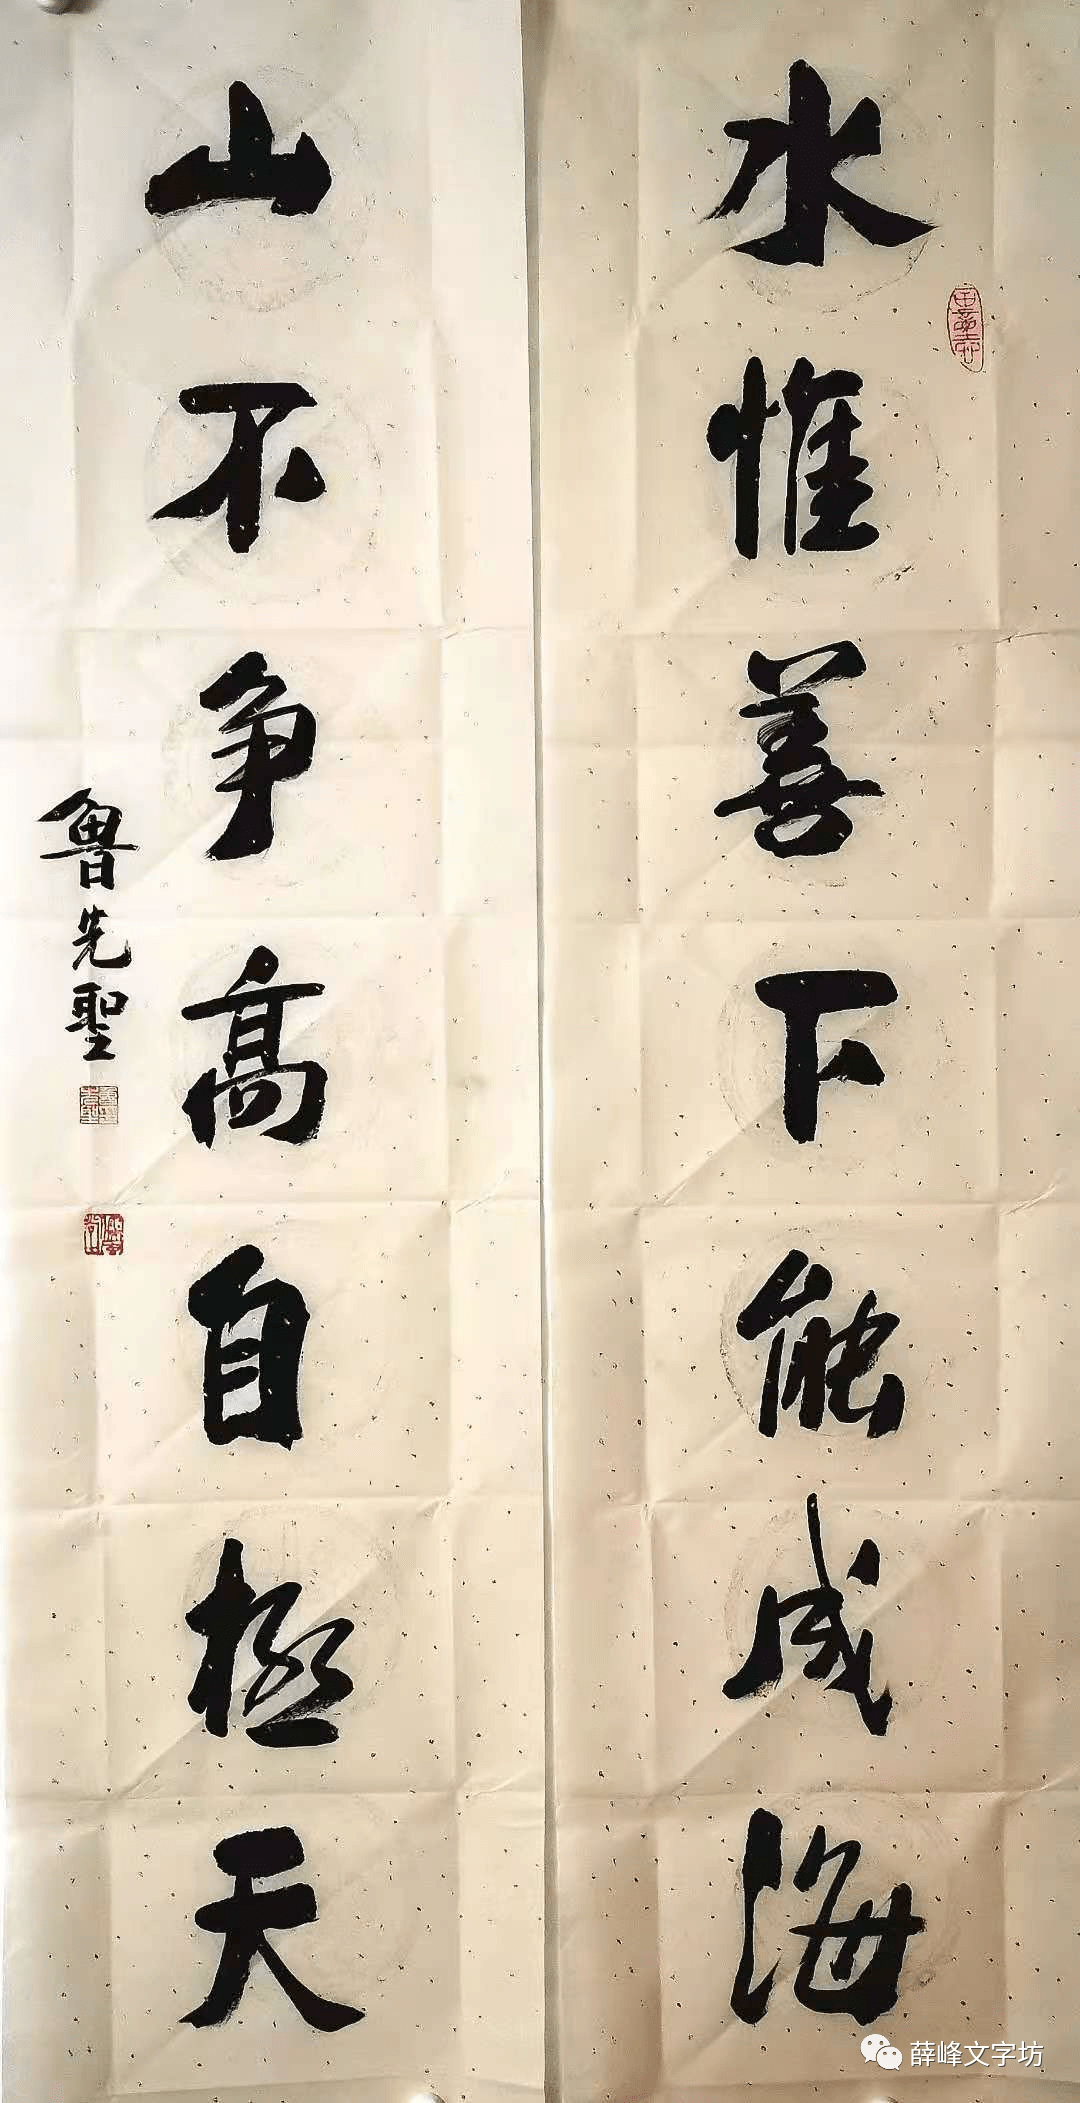 水惟善下能成海
山不争高自極天
魯先聖
薛峰文字坊